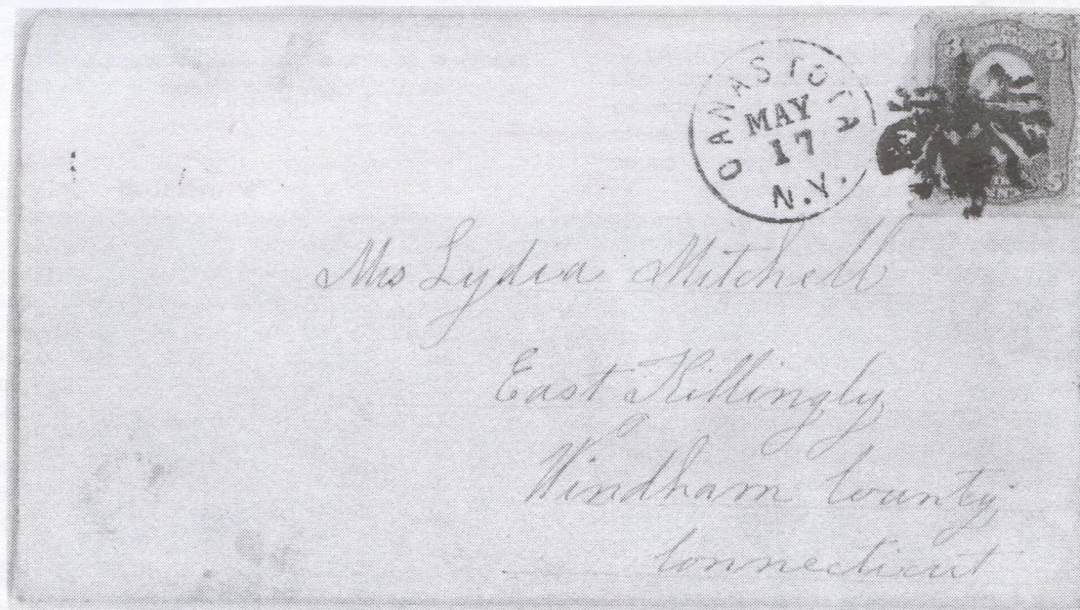 CANASTOTA
MAY
17
N.Y.
3 3
Mrs Lydia Mitchell
East Killingly
Windham County
Connecticut